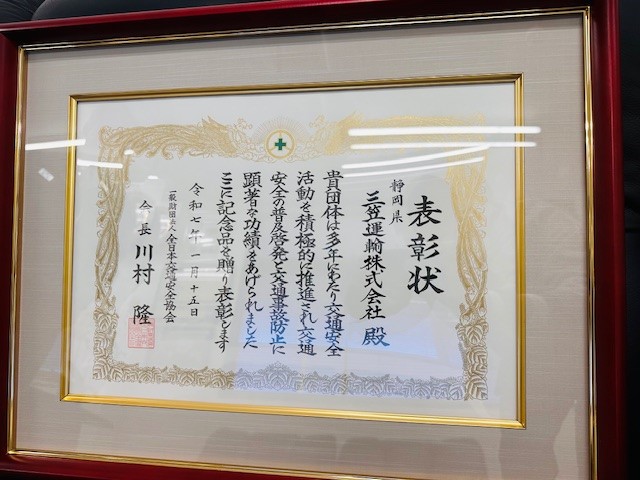 表彰状
静岡県
三笠運輸株式会社 殿
貴団体は多年にわたり交通安全
活動を積極的に推進され交通
安全の普及啓発と交通事故防止に
顕著な功績をあげられました
ここに記念品を贈り表彰します
令和七年一月十五日
一般財団法人 全日本交通安全協会
会長 川村 隆